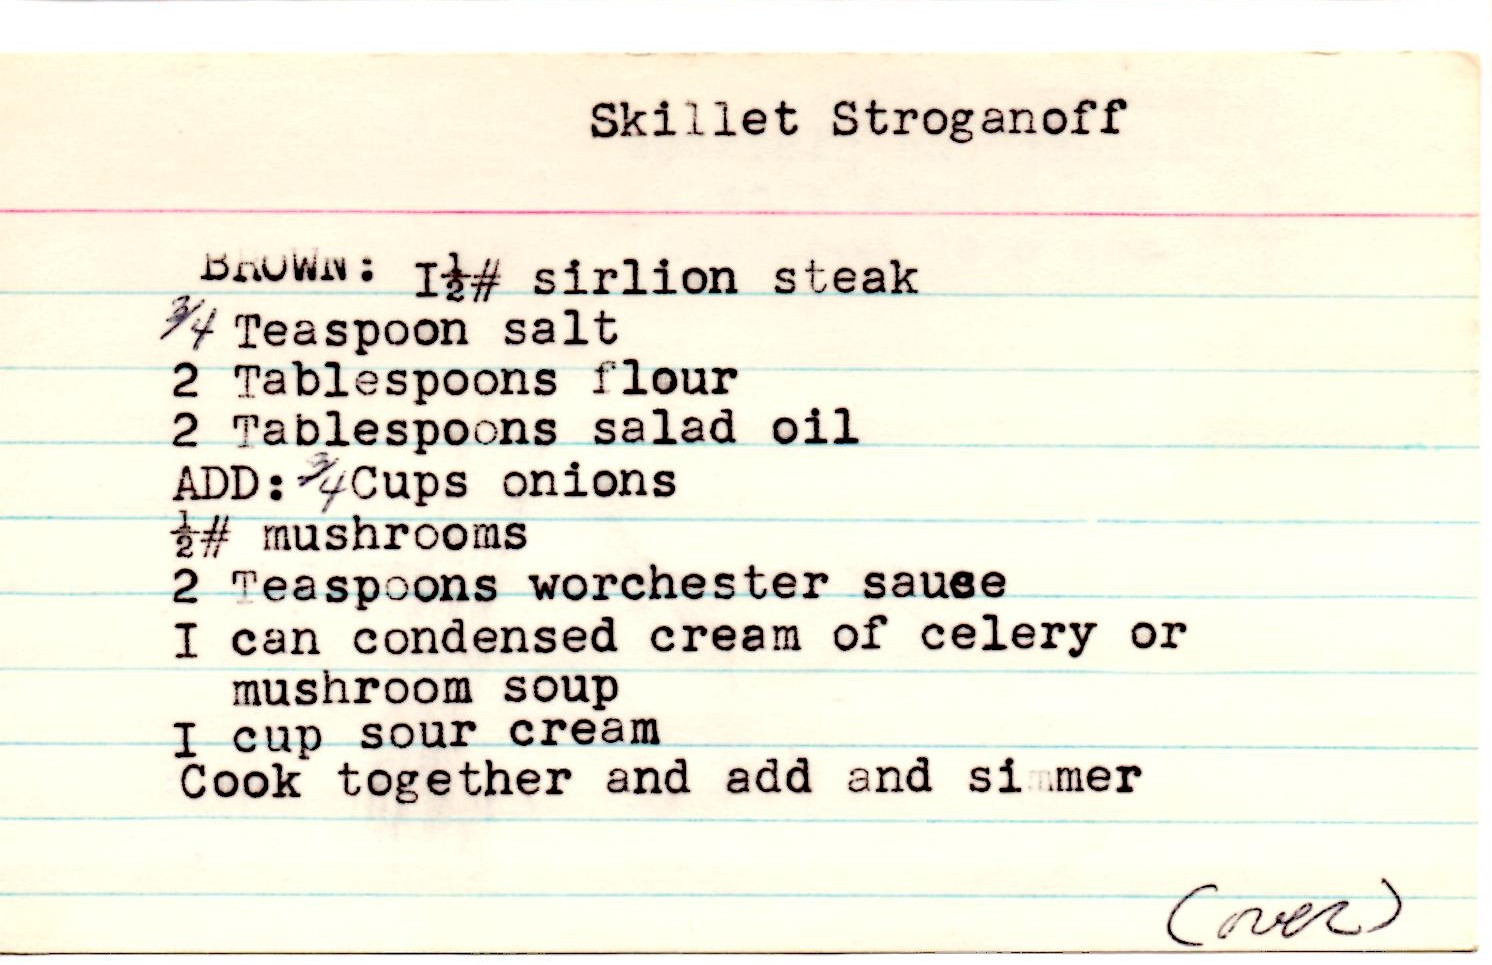 Skillet Stroganoff
BROWN: I½# sirlion steak
3/4 Teaspoon salt
2 Tablespoons flour
2 Tablespoons salad oil
ADD: 3/4 Cups onions
½# mushrooms
2 Teaspoons worchester sause
I can condensed cream of celery or
mushroom soup
I cup sour cream
Cook together and add and simmer
(over)